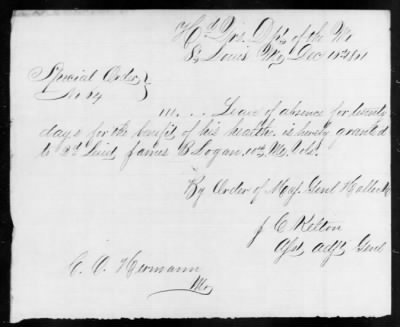 Hd Qrs. Dpt. of the Mo
St Louis Mo, Dec 1861
Special Order
No 84
III. . . Leave of absence for twenty
days for the benefit of his health is hereby granted
to 2d Lieut James B Logan, 10th Mo. Vols.
By Order of Maj. Genl Halleck
J C Kelton
Asst. Adjt. Genl
C. O. Hermann